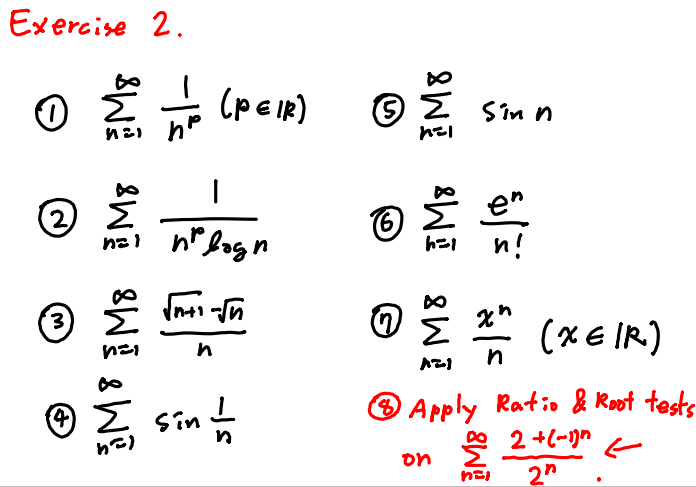 Exercise 2.
① ∞∑n=1 1/n^p (p ∈ ℝ)
② ∞∑n=1 1/(n^p log n)
③ ∞∑n=1 (√(n+1) - √n)/n
④ ∞∑n=1 sin 1/n
⑤ ∞∑n=1 sin n
⑥ ∞∑n=1 e^n/n!
⑦ ∞∑n=1 x^n/n (x ∈ ℝ)
⑧ Apply Ratio & Root tests
on ∞∑n=1 (2+(-1)^n)/2^n . ←